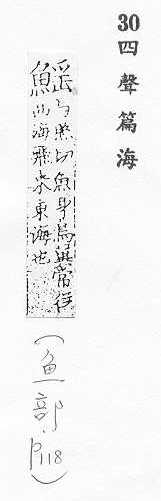 30 四聲篇海
鰩与照切魚身鳥翼常往
西海飛來東海也
(魚部.P118)